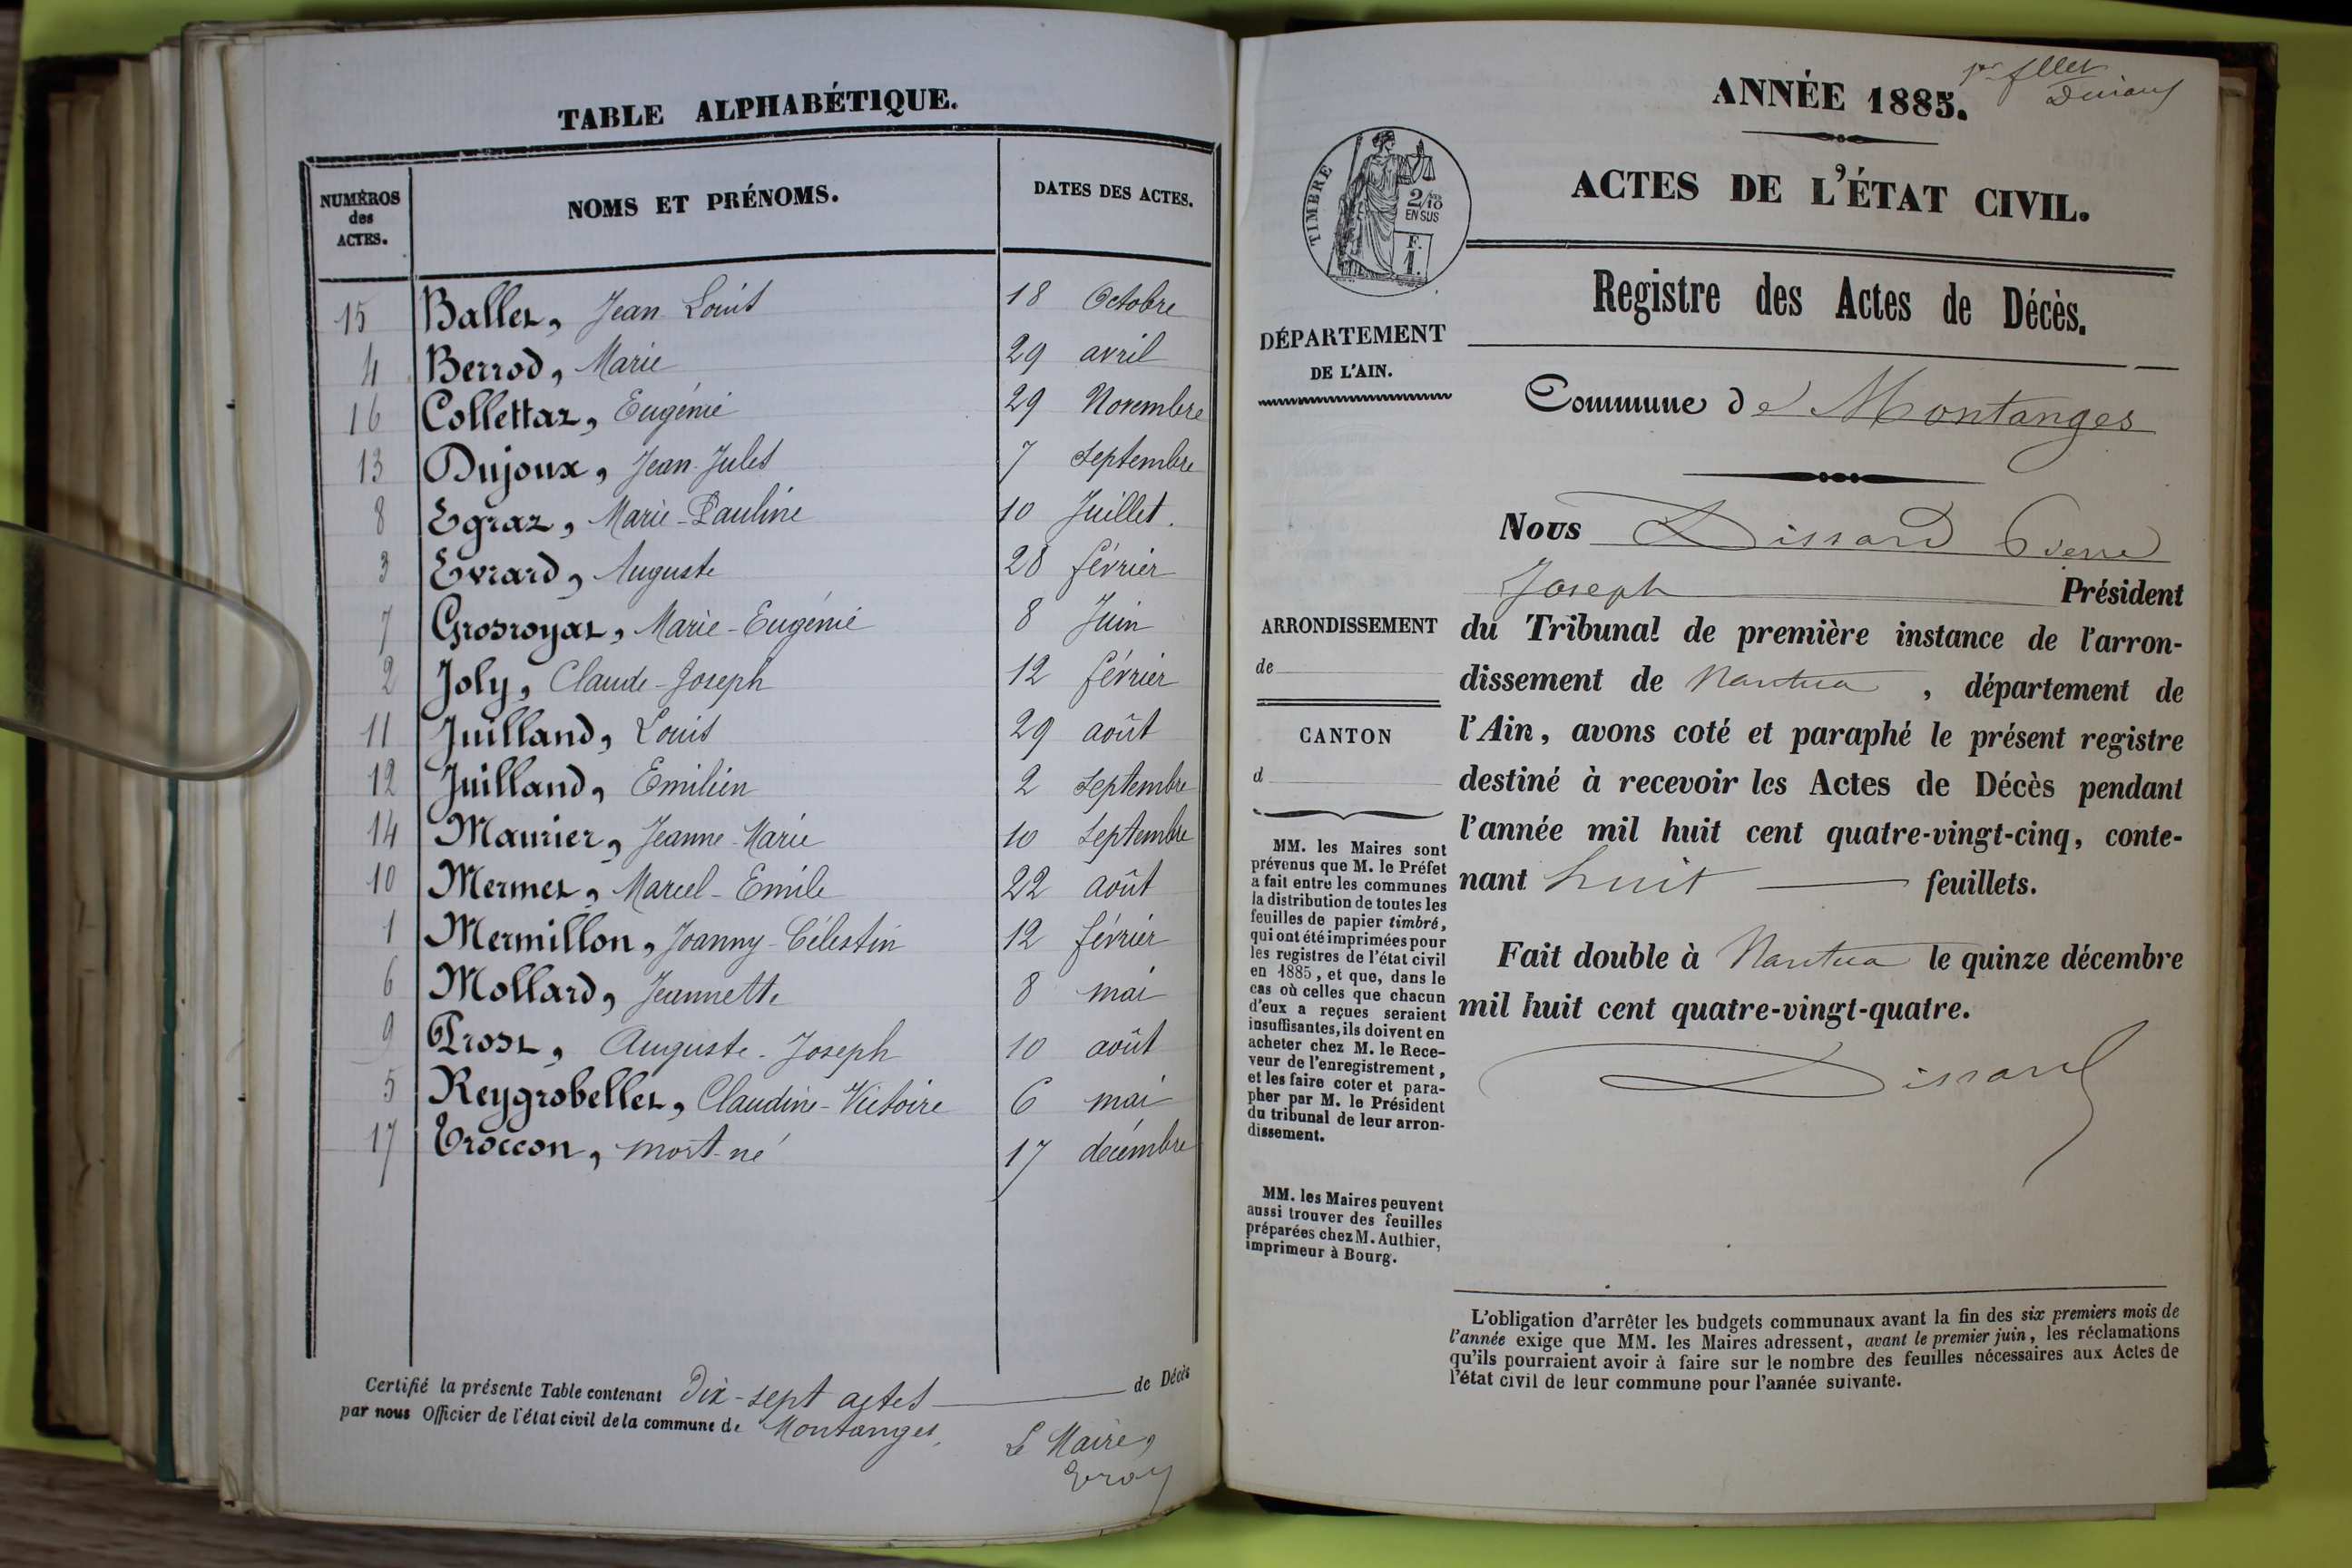 TABLE ALPHABÉTIQUE.
NUMÉROS des ACTES. NOMS ET PRÉNOMS. DATES DES ACTES.
15 Ballet, Jean Louis 18 Octobre
4 Berrod, Marie 29 avril
16 Collettaz, Eugénie 29 Novembre
13 Dujoux, Jean-Jules 7 septembre
8 Egraz, Marie-Pauline 10 Juillet.
3 Evrard, Auguste 28 février
7 Grosroyat, Marie-Eugénie 8 Juin
2 Joly, Claude-Joseph 12 février
11 Juilland, Louis 29 août
12 Juilland, Emilien 2 septembre
14 Maurier, Jeanne-Marie 10 septembre
10 Mermet, Marcel-Emile 22 août
1 Mermillon, Joanny-Célestin 12 février
6 Mollard, Jeannette 8 mai
9 Prost, Auguste-Joseph 10 août
5 Reygrobellet, Claudine-Victoire 6 mai
17 Troccon, mort-né 17 décembre
Certifié la présente Table contenant Dix-sept actes de Décès
par nous Officier de l'état civil de la commune de Montanges,
Le Maire,
ANNÉE 1885.
ACTES DE L'ÉTAT CIVIL.
TIMBRE
2/10
EN SUS
F.
1.
Registre des Actes de Décès.
DÉPARTEMENT
DE L'AIN.
Commune de Montanges
Nous Dissard Pierre
Joseph Président
ARRONDISSEMENT
de
CANTON
d
du Tribunal de première instance de l'arron-
dissement de Nantua, département de
l'Ain, avons coté et paraphé le présent registre
destiné à recevoir les Actes de Décès pendant
l'année mil huit cent quatre-vingt-cinq, conte-
nant huit feuillets.
Fait double à Nantua le quinze décembre
mil huit cent quatre-vingt-quatre.
Dissard
MM. les Maires sont
prévenus que M. le Préfet
a fait entre les communes
la distribution de toutes les
feuilles de papier timbré,
qui ont été imprimées pour
les registres de l'état civil
en 1885, et que, dans le
cas où celles que chacun
d'eux a reçues seraient
insuffisantes, ils doivent en
acheter chez M. le Rece-
veur de l'enregistrement,
et les faire coter et para-
pher par M. le Président
du tribunal de leur arron-
dissement.
MM. les Maires peuvent
aussi trouver des feuilles
préparées chez M. Authier,
imprimeur à Bourg.
L'obligation d'arrêter les budgets communaux avant la fin des six premiers mois de
l'année exige que MM. les Maires adressent, avant le premier juin, les réclamations
qu'ils pourraient avoir à faire sur le nombre des feuilles nécessaires aux Actes de
l'état civil de leur commune pour l'année suivante.